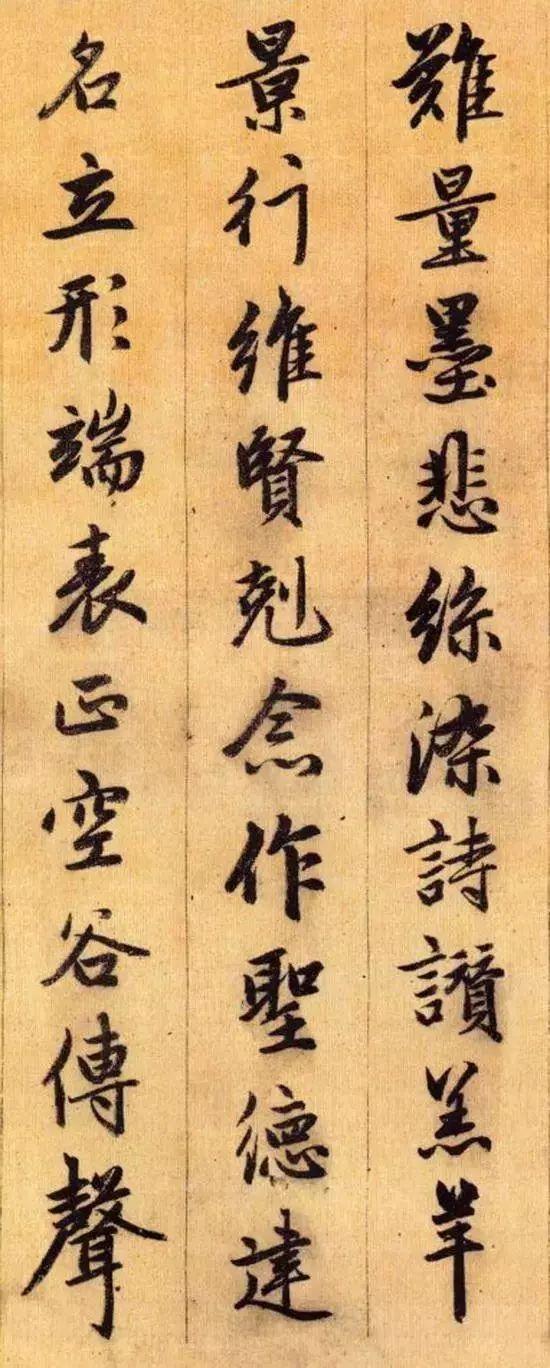 難量墨悲絲染詩讚羔羊
景行維賢剋念作聖德建
名立形端表正空谷傳聲